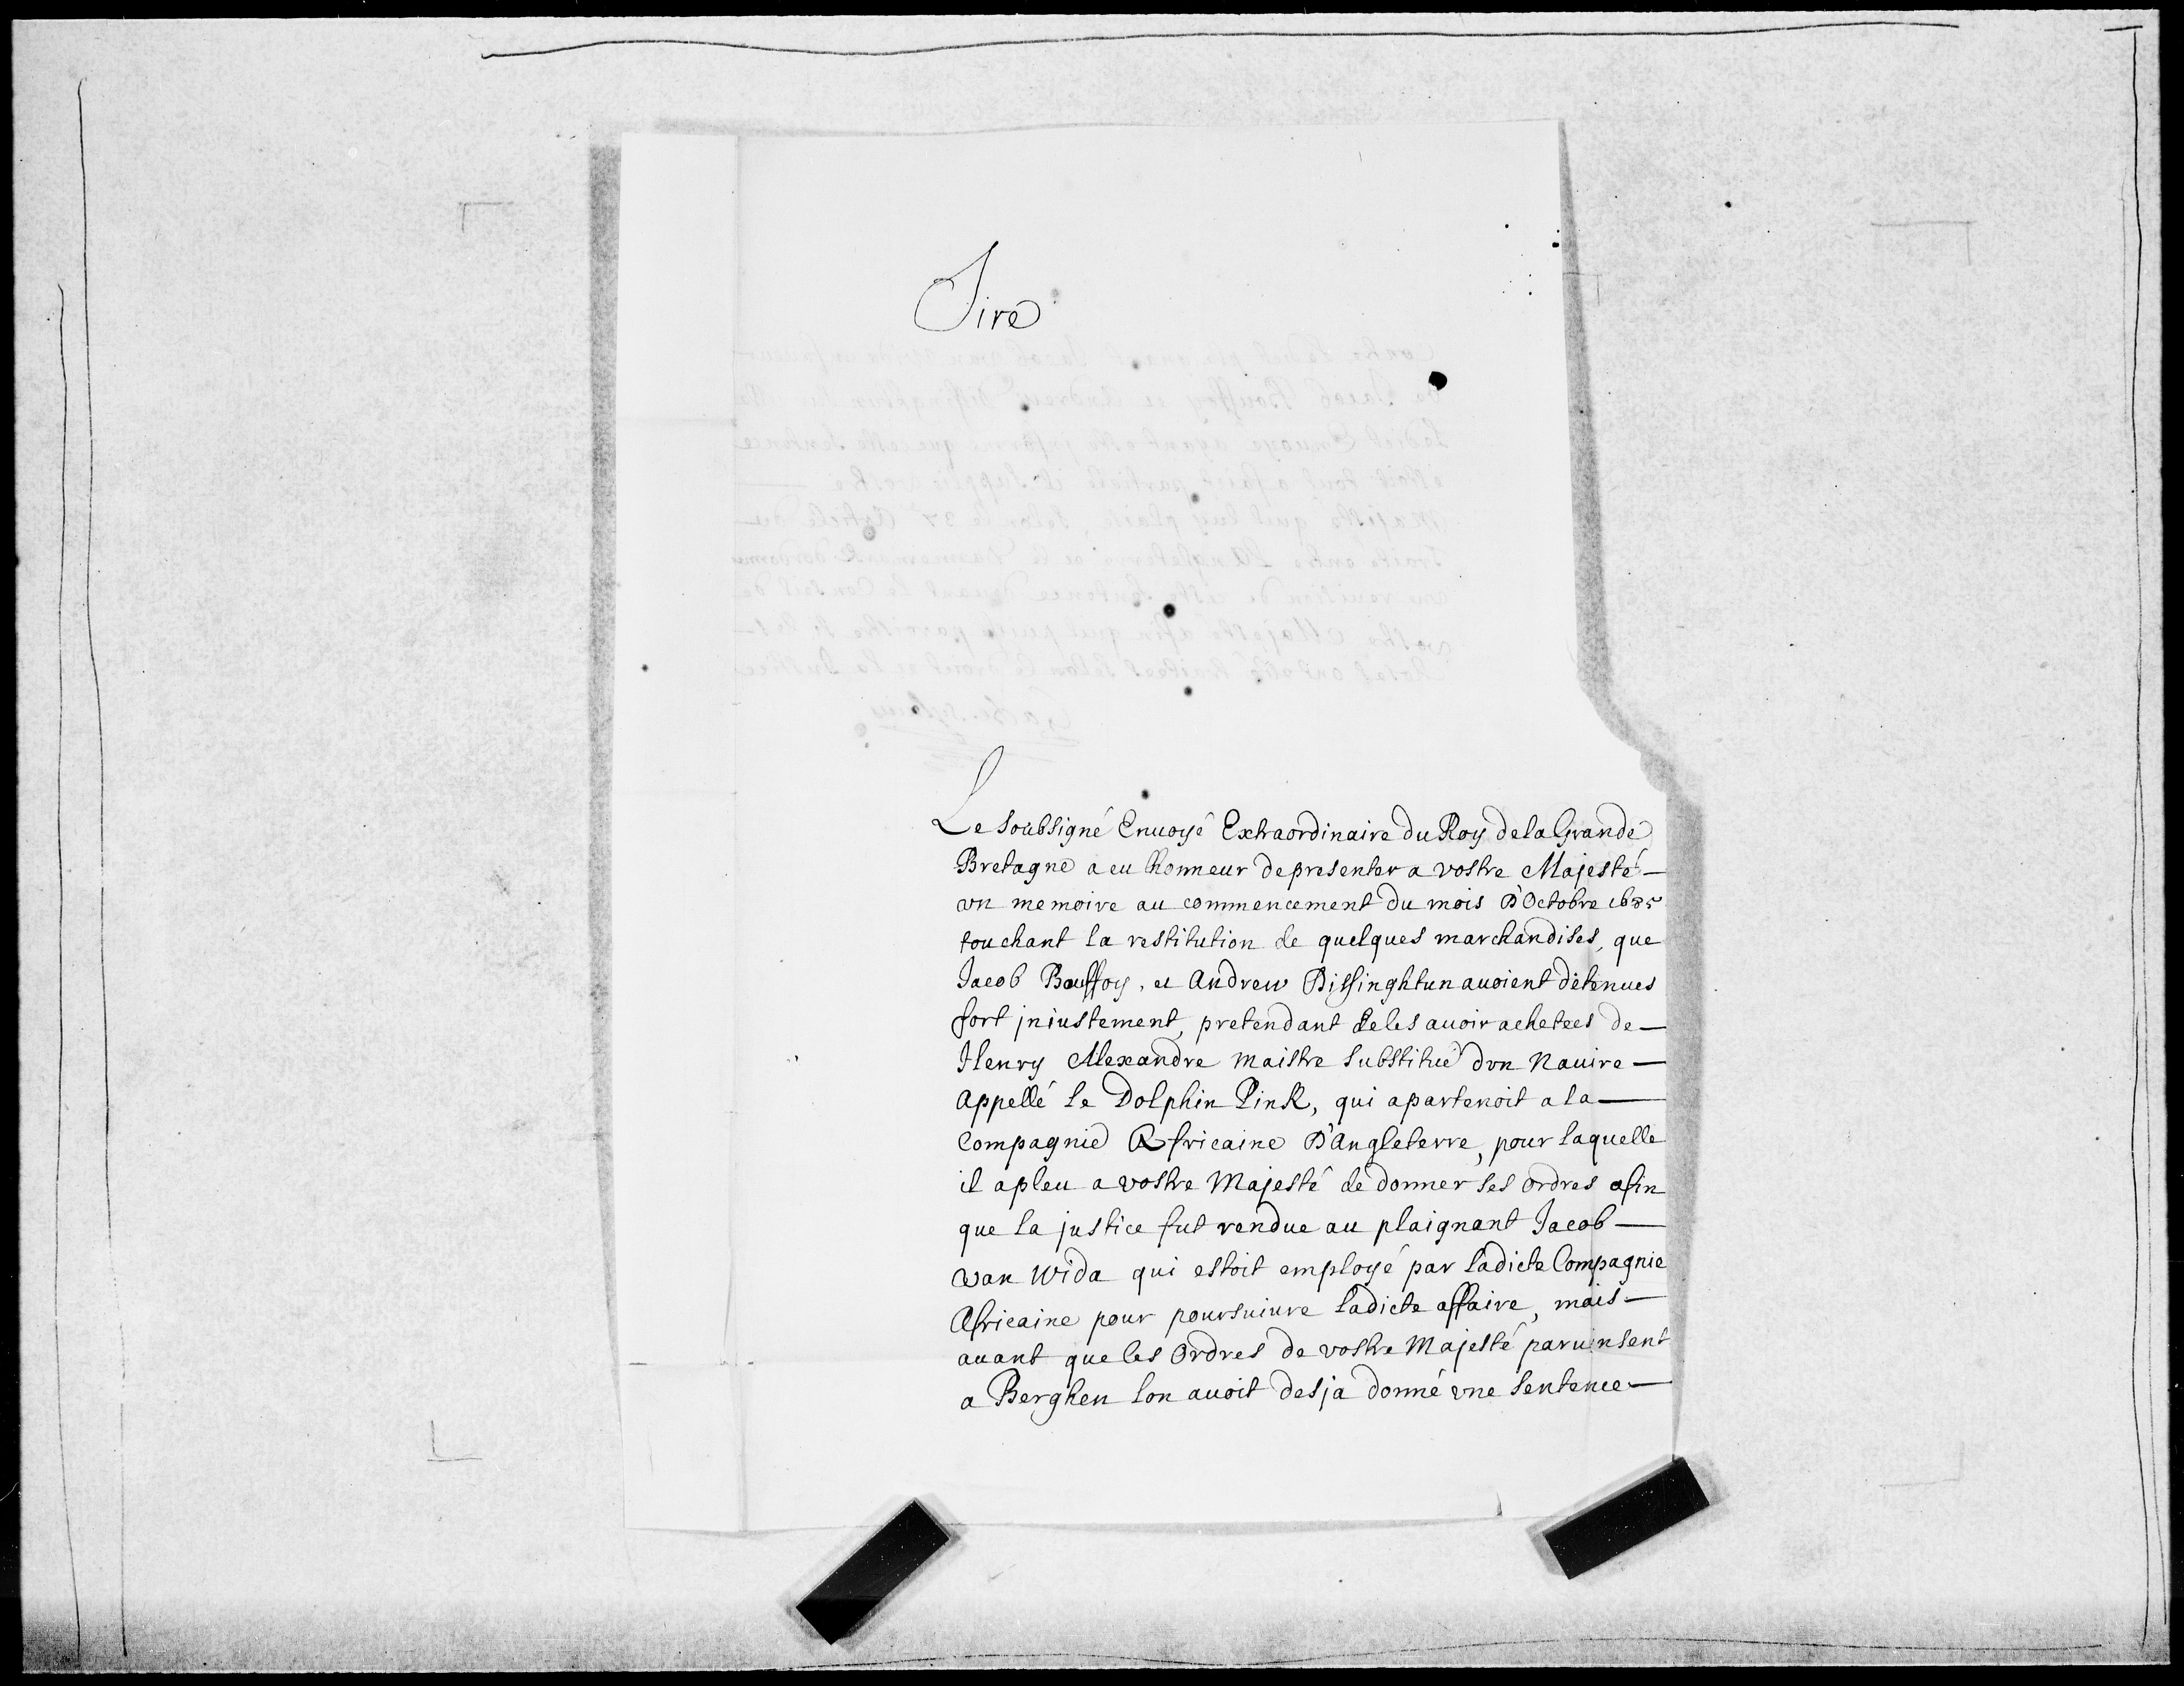 Sire
Le soubsigné Enuoyé Extraordinaire du Roy de la Grande
Bretagne a eu lhonneur de presenter a vostre Majesté —
vn memoire au commencement du mois D'Octobre 1685
touchant la restitution de quelques marchandises, que
Jacob Bouffoy, et Andrew Dissinghtun auoient détenues
fort jniustement, pretendant de les auoir achetees de —
Henry Alexandre maistre substitué d'vn Nauire —
Appellé le Dolphin Pink, qui apartenoit a la —
Compagnie Africaine D'Angleterre, pour laquelle
il a pleu a vostre Majesté de donner ses ordres afin
que la justice fut rendue au plaignant Jacob —
van Wida qui estoit employé par ladicte Compagnie
Africaine pour poursuiure ladicte affaire, mais —
auant que les Ordres de vostre Majesté paruinsent
a Berghen lon auoit desja donné vne sentence —